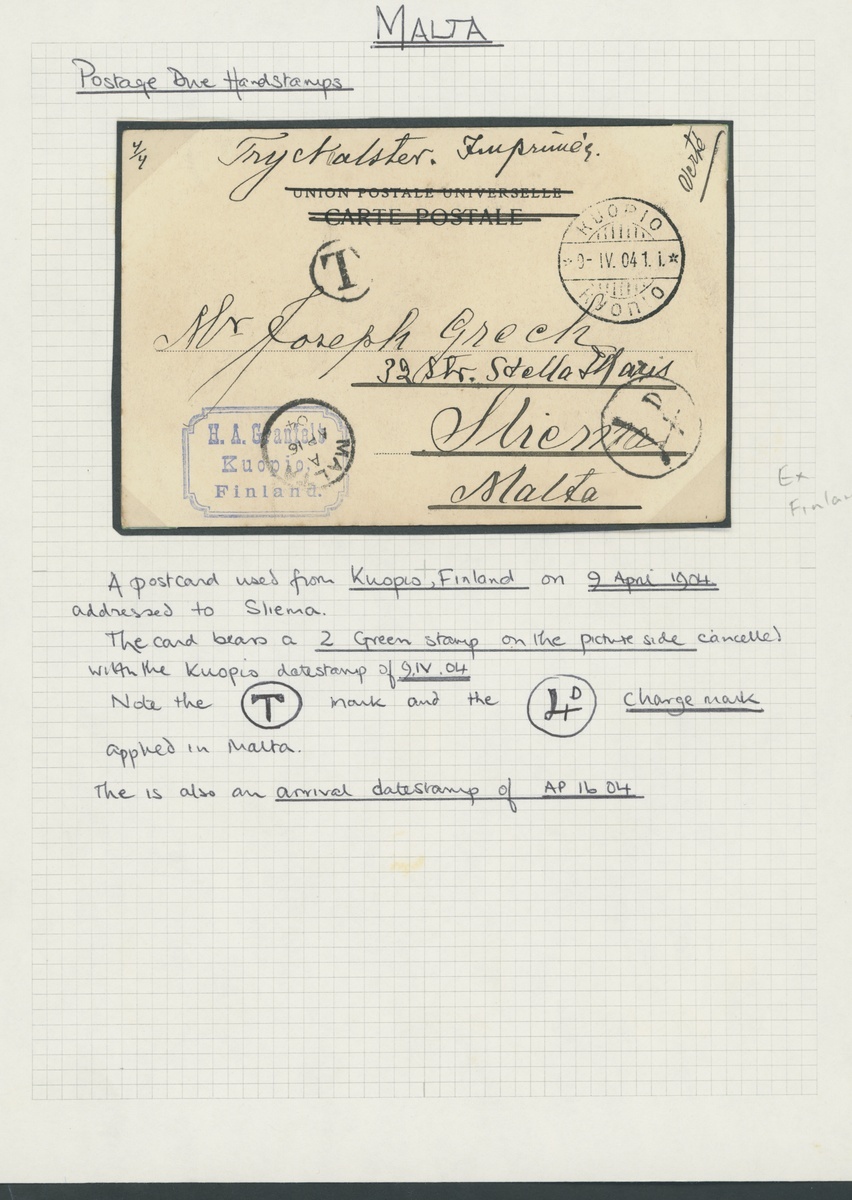 MALTA
Postage Due Handstamps
4/4 Trycksalster. Imprimés. Verte
UNION POSTALE UNIVERSELLE
CARTE POSTALE
KUOPIO
9-IV.04 1.i.
T
Mr Joseph Grech
32 Str. Stella Maris
Sliema
Malta
4D
H. A. Granfelt
Kuopio,
Finland.
MALTA
A
AP 16
04
Ex
Finlan
A postcard used from Kuopio, Finland on 9 April 1904
addressed to Sliema.
The card bears a 2 Green stamp on the picture side cancelled
with the Kuopio datestamp of 9.IV.04
Note the T mark and the 4D Charge mark
applied in Malta.
The is also an arrival datestamp of AP 16 04